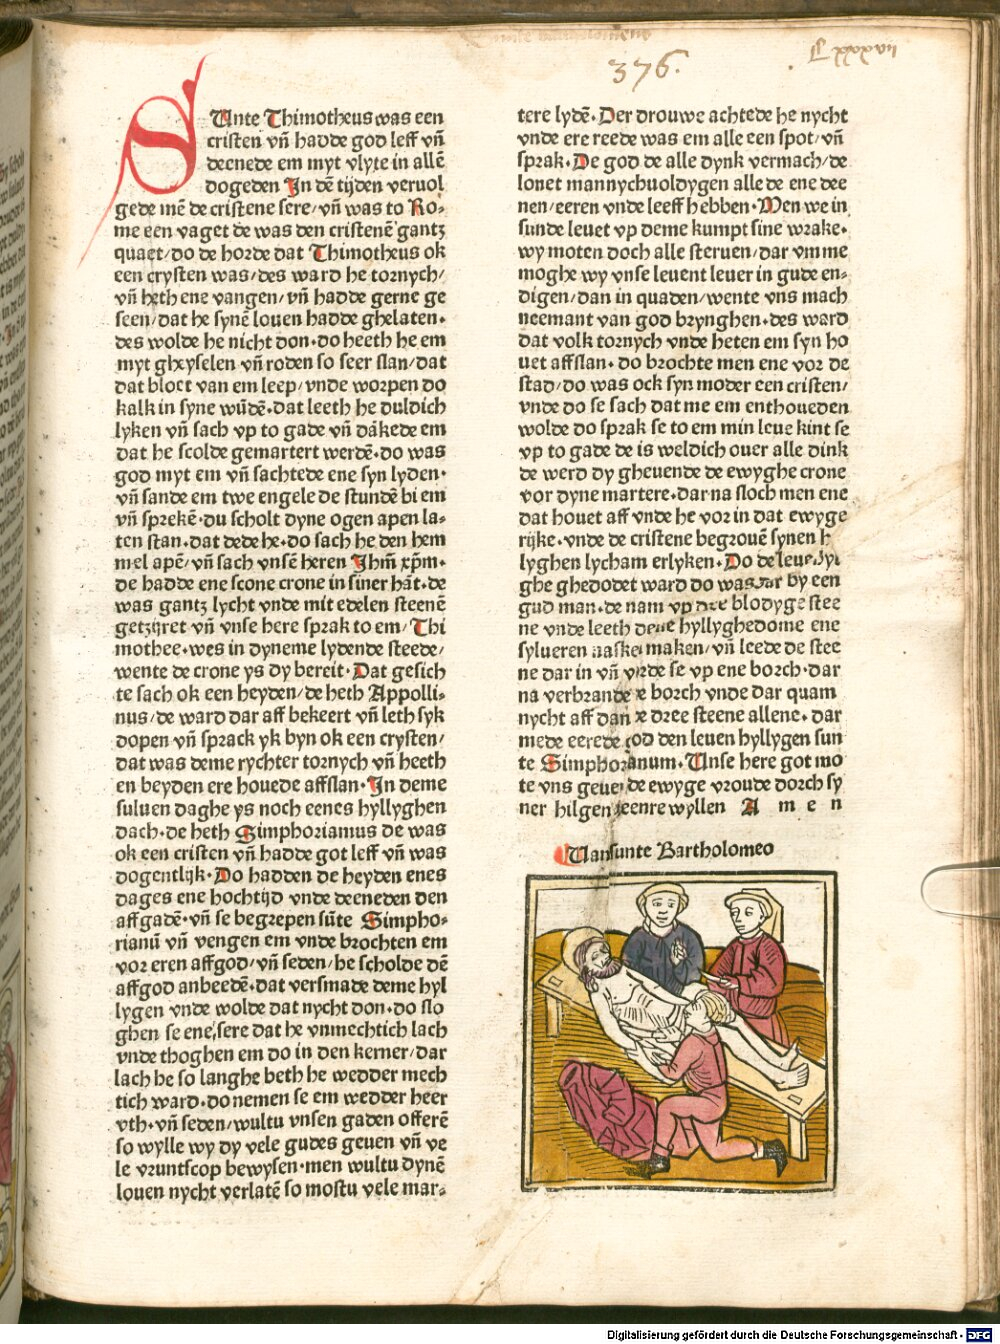 376.
C xxxvii
SUnte Thimotheus was een
cristen vn̄ hadde god leff vn̄
deenede em myt vlyte in allē
dogeden Jn dē tijden veruol
gede mē de cristene sere/vn̄ was to Ro⸗
me een vaget de was den cristenē gantz
quaet/do de horde dat Thimotheus ok
een crysten was/des ward he tornych/
vn̄ heth ene vangen/vn̄ hadde gerne ge
seen/dat he synē louen hadde ghelaten.
des wolde he nicht don.do heeth he em
myt gheyselen vn̄ roden so seer slan/dat
dat bloet van em leep/vnde worpen do
kalk in syne wūdē.dat leeth he duldich
lyken vn̄ sach vp to gade vn̄ dākede em
dat he scolde gemartert werdē.do was
god myt em vn̄ sachtede ene syn lyden.
vn̄ sande em twe engele de stundē bi em
vn̄ sprekē.du scholt dyne ogen apen la⸗
ten stan.dat dede he.do sach he den hem
mel apē/vn̄ sach vnsē heren Jhm̄ xp̄m.
de hadde ene scone crone in siner hāt.de
was gantz lycht vnde mit edelen steenē
getzijret vn̄ vnse here sprak to em/Thi
mothee.wes in dyneme lydende steede/
wente de crone ys dy bereit.Dat gesich
te sach ok een heyden/de heth Appolli⸗
nus/de ward dar aff bekeert vn̄ leth syk
dopen vn̄ sprack yk byn ok een crysten/
dat was deme rychter tornych vn̄ heeth
en beyden ere houede affslan.Jn deme
suluen daghe ys noch eenes hyllyghen
dach.de heth Simphorianus de was
ok een cristen vn̄ hadde got leff vn̄ was
dogentlijk.Do hadden de heyden enes
dages ene hochtijd vnde deeneden den
affgadē.vn̄ se begrepen sūte Simpho⸗
rianū vn̄ vengen em vnde brochten em
vor eren affgod/vn̄ seden/he scholde dē
affgod anbeedē.dat versmade deme hyl
lygen vnde wolde dat nycht don.do slo
ghen se ene sere dat he vnmechtich lach
vnde thoghen em do in den kerner/dar
lach he so langhe beth he wedder mech
tich ward.do nemen se em wedder heer
vth.vn̄ seden/wultu vnsen gaden offerē
so wylle wy dy vele gudes geuen vn̄ ve
le vruntscop bewysen.men wultu dynē
louen nycht verlatē so mostu vele mar⸗
tere lydē.Der drouwe achtede he nycht
vnde ere reede was em alle een spot/vn̄
sprak.De god de alle dynk vermach/de
lonet mannychuoldygen alle de ene dee
nen/eeren vnde leeff hebben.Men we in
sunde leuet vp deme kumpt sine wrake.
wy moten doch alle steruen/dar vmme
moghe wy vnse leuent leuer in gude en⸗
digen/dan in quaden/wente vns mach
neemant van god brynghen.des ward
dat volk tornych vnde heten em syn ho
uet affslan.do brochte men ene vor de
stad/do was ock syn moder een cristen/
vnde do se sach dat me em enthoueden
wolde do sprak se to em min leue kint se
vp to gade de is weldich ouer alle dink
de werd dy gheuende de ewyghe crone
vor dyne martere.dar na sloch men ene
dat houet aff vnde he vor in dat ewyge
rijke.vnde de cristene begrouē synen h
lyghen lycham erlyken.Do de leue hyl
ghe ghedodet ward do was dar by een
gud man.de nam vp dree blodyge stee
ne vnde leeth deme hyllyghedome ene
sylueren maken/vn̄ leede de stee
ne dar in vn̄ vnde se vp ene borch.dar
na verbrande de borch vnde dar quam
nycht aff dan de dree steene allene.dar
mede eerede god den leuen hyllygen sun
te Simphorianum.Vnse here got mo
te vns geuen de ewyge vroude dorch sy
ner hilgen deenre wyllen A m e n
Uan sunte Bartholomeo
Digitalisierung gefördert durch die Deutsche Forschungsgemeinschaft - DFG